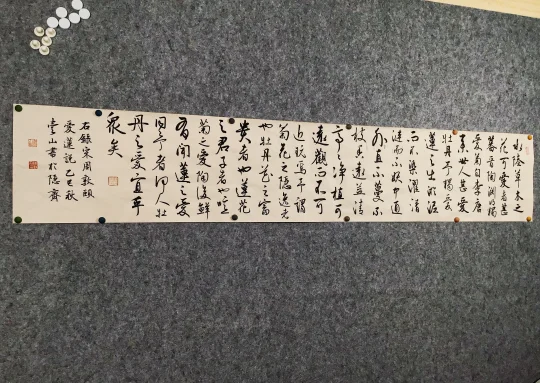 水陸草木之
花可愛者甚
蕃晉陶淵明獨
愛菊自李唐
来世人甚愛
牡丹予獨愛
蓮之出淤泥
而不染濯清
漣而不妖中通
外直不蔓不
枝香遠益清
亭亭净植可
遠觀而不可
近玩焉予謂
菊花之隐逸者
也牡丹花之富
貴者也蓮花
之君子者也噫
菊之愛陶後鮮
有聞蓮之愛
同予者何人牡
丹之愛宜乎
眾矣
右錄宋周敦頤
愛蓮說乙巳秋
山書於隐齋